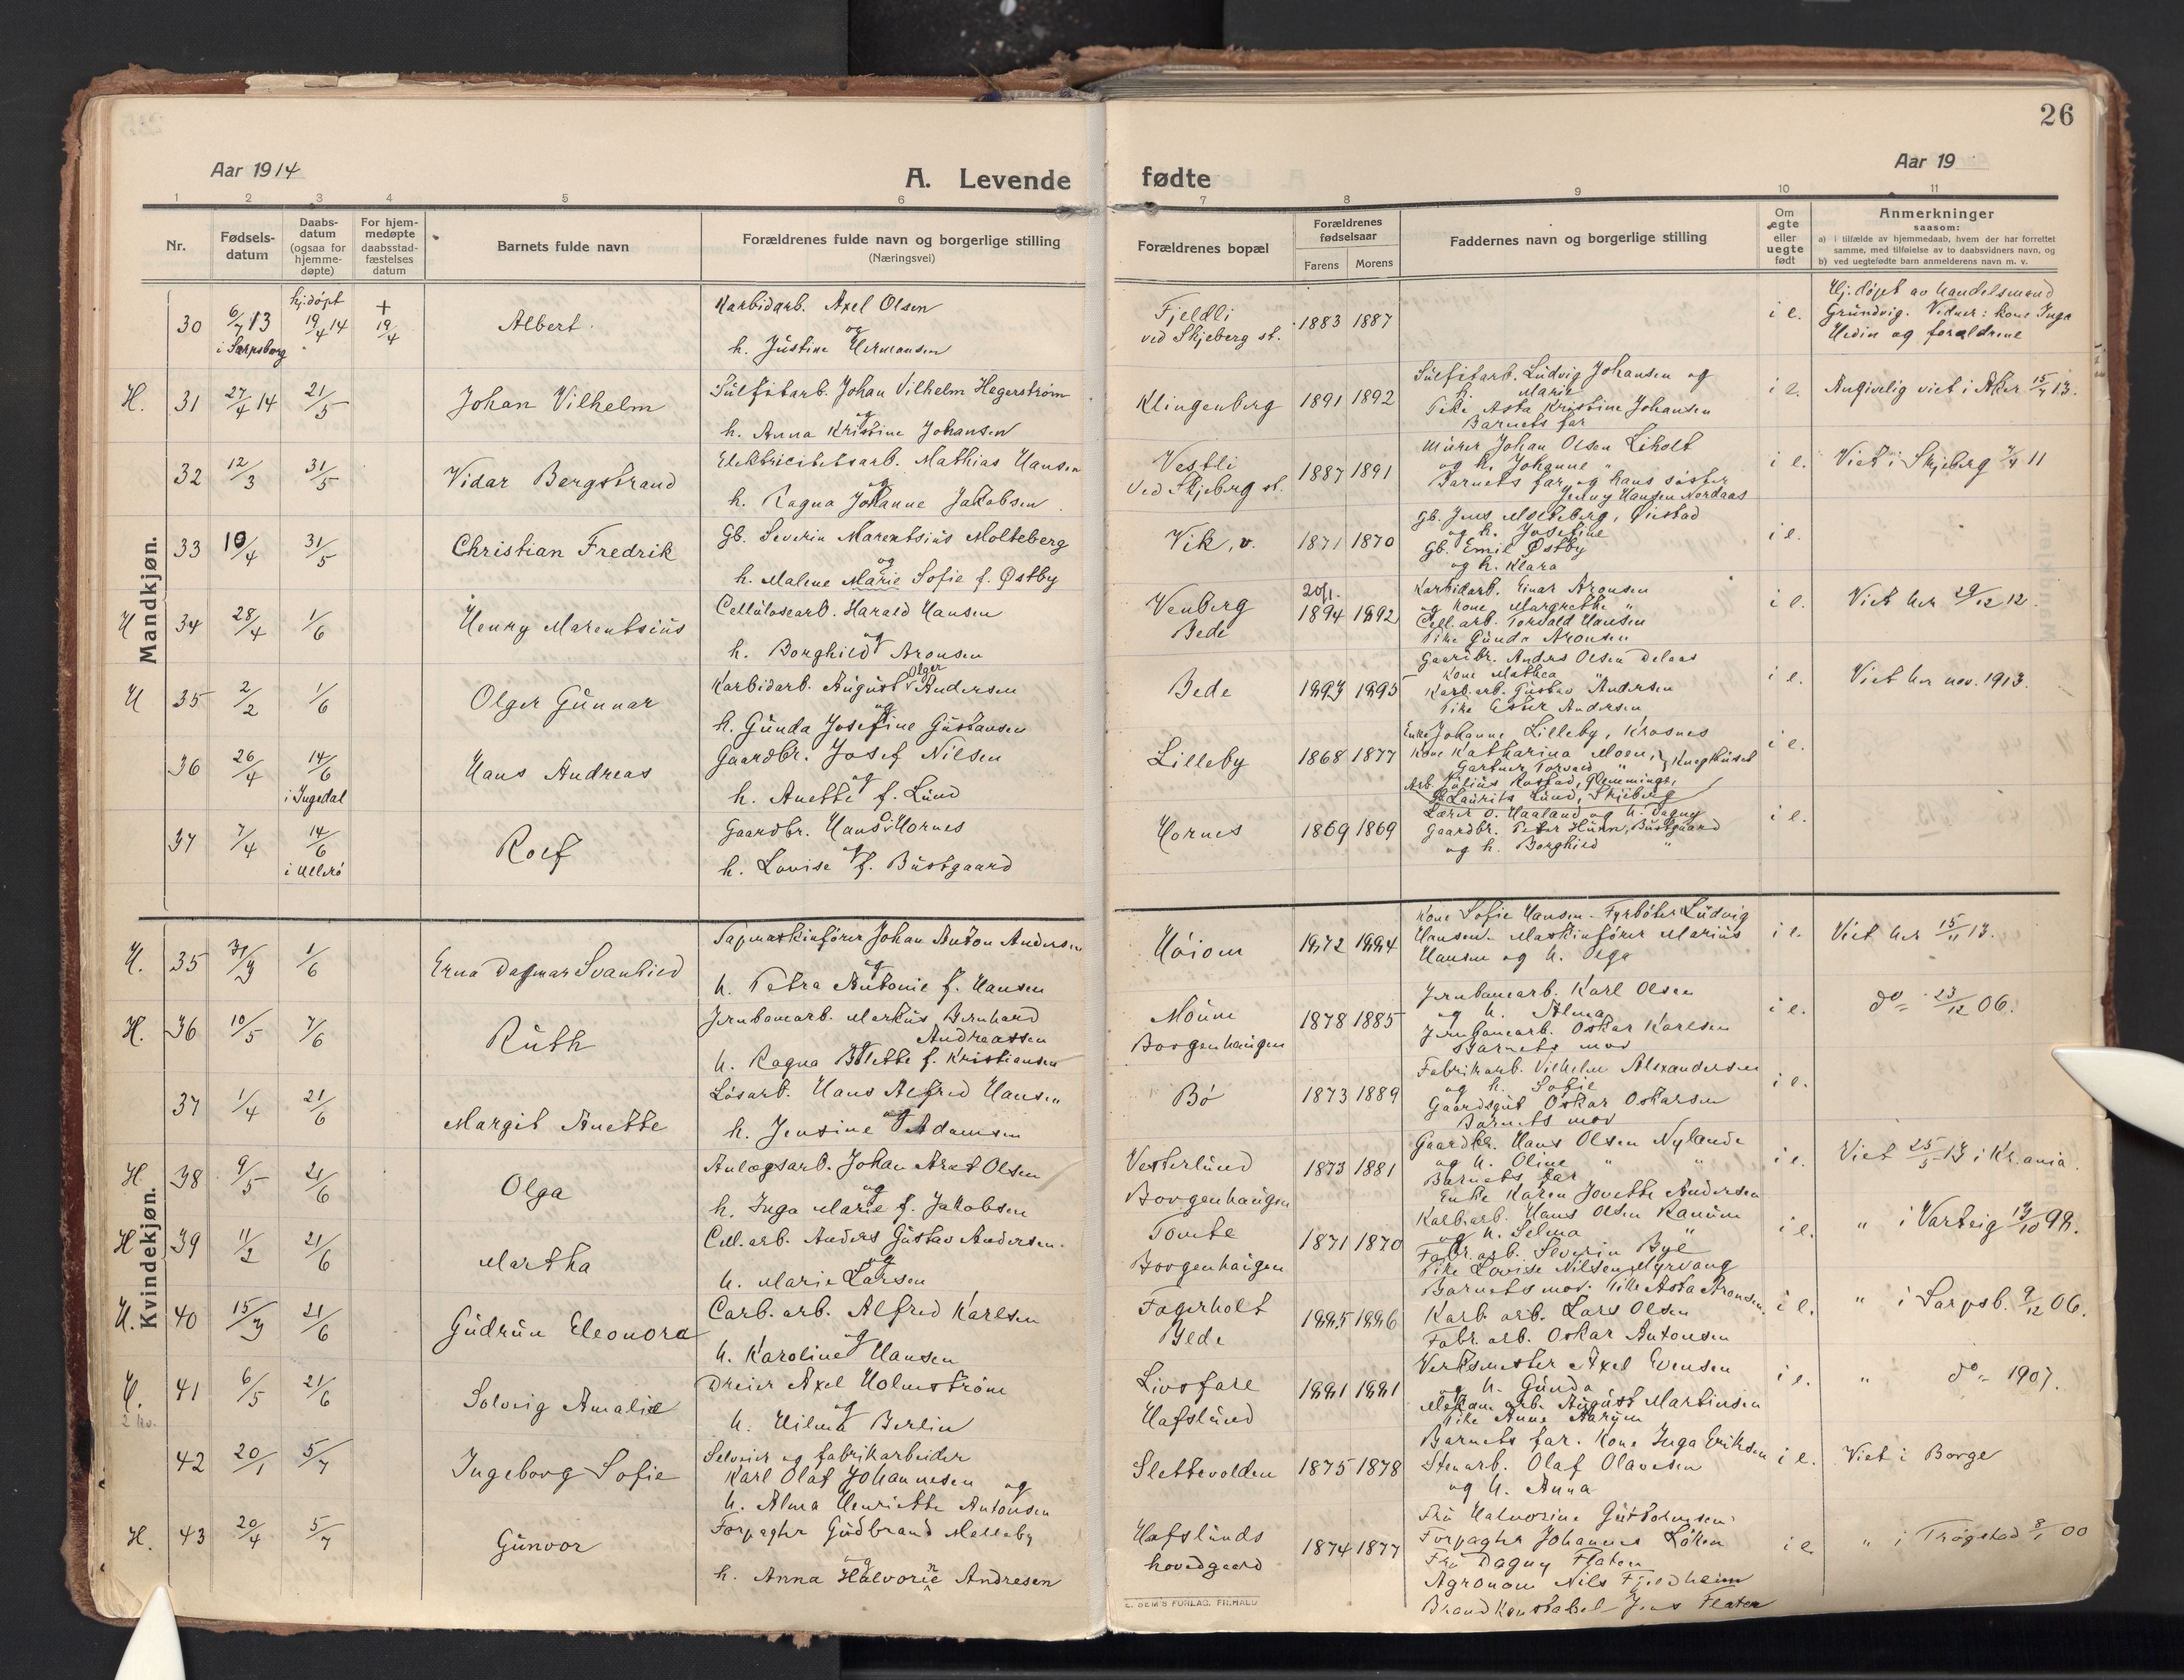 26
Aar 1914
A. Levende
fødte
Aar 19
1 2 3 4 5 6 7 8 9 10 11
Nr.
Fødsels-
datum
Daabs-
datum
(ogsaa for
hjemme-
døpte)
For hjem-
medøpte
daabsstad-
fæstelses
datum
Barnets fulde navn
Forældrenes fulde navn og borgerlige stilling
(Næringsvei)
Forældrenes bopæl
Forældrenes
fødselsaar
Farens Morens
Faddernes navn og borgerlige stilling
Om
egte
eller
uegte
født
Anmerkninger
saasom:
a) i tilfælde av hjemmedaab, hvem der har forrettet
samme, med tilføielse av to daabsvidners navn, og
b) ved uegtefødte barn anmelderens navn m. v.
Mandkjøn.
30 6/7 13 i Sarpsborg
hj.døpt 19/4 14
+ 19/4
Albert
Karbidarb. Axel Olsen
og
h. Justine Hermansen
Fjeldli
ved Skjeberg st.
1883 1887
i e.
Hj. døpt av Handelsmand
Grundvig. Vidner: kone Inga
Hedin og forældrene
H. 31 27/4 14 21/5
Johan Vilhelm
Sulfitarb. Johan Vilhelm Hegerstrøm
og
h. Anna Kristine Johansen
Klingenberg
1891 1892
Sulfitarb. Ludvig Johansen og
h. Marie
Pike Asta Kristine Johansen
Barnets far
i e.
Angivelig viet i Aker 15/7 13.
32 12/3 31/5
Vidar Bergstrand
Elektricitetsarb. Mathias Hansen
og
h. Ragna Johanne Jakobsen
Vestli
Ved Skjeberg st.
1887 1891
Murer Johan Olsen Liholt
og h. Johanne "
Barnets far og hans søster
Jenny Hansen Nordaas
i e.
Viet i Skjeberg 7/7 11
33 10/4 31/5
Christian Fredrik
Gb. Severin Marentsius Molteberg
og
h. Malene Marie Sofie f. Østby
Vik, v.
1871 1870
Gb. Jens Molteberg, Øiestad
og h. Josefine
Gb. Emil Østby
og h. Klara
i e.
H 34 28/4 1/6
Henry Marentsius
Cellulosearb. Harald Hansen
og
h. Borghild Aronsen
Venberg
Bede
20/1.
1894 1892
Karbidarb. Einar Aronsen
og kone Margrethe "
Cell. arb. Torvald Hansen
Pike Gunda Aronsen
i e.
Viet her 29/12 12.
H 35 2/2 1/6
Olger Gunnar
Olger
Karbidarb. August Andersen
og
h. Gunda Josefine Gustavsen
Bede
1893 1895
Gaardbr. Anders Olsen Delaas
Kone Mathea "
Karb. arb. Gustav Andersen
Pike Ester Andersen
i e.
Viet her nov. 1913.
36 26/4 14/6 i Ingedal
Hans Andreas
Gaardbr. Josef Nilsen
og
h. Anette f. Lund
Lilleby
1868 1877
Enke Johanne Lilleby, Krosnes
Kone Katharina Moen,
Gartner Torvald " } Knephuset
Arb. Julius Rostad, Glemminge,
Gb. Laurits Lund, Skjeberg
i e.
37 7/4 14/6 i Ullerø
Rolf
Gaardbr. Hans Hornes
og
h. Lovise f. Bustgaard
Hornes
1869 1869
Lærer O. Haaland og h. Dagny
Gaardbr. Peter Hunn, Bustgaard
og h. Borghild "
i e.
Kvindekjøn.
H. 35 31/3 1/6
Erna Dagmar Svanhild
Tapmaskinfører Johan Anton Andersen
og
h. Petra Antonie f. Hansen
Høiom
1872 1884
Kone Sofie Hansen. Fyrbøter Ludvig
Hansen. Maskinfører Marius
Hansen og h. Olga
i e.
Viet her 15/11 13.
H. 36 10/5 7/6
Ruth
Jernbanearb. Markus Bernhard
Andreassen
og
h. Ragna Bolette f. Kristiansen
Moum
Borgenhaugen
1878 1885
Jernbanearb. Karl Olsen
og h. Alma
Jernbanearb. Oskar Karlsen
Barnets mor
i e.
do 23/12 06.
37 1/4 21/6
Margit Anette
Løsarb. Hans Alfred Hansen
og
h. Jensine Adamsen
Bø
1873 1889
Fabrikarb. Vilhelm Alexandersen
og h. Sofie
Gaardsgut Oskar Oskarsen
Barnets mor
i e.
H. 38 9/5 21/6
Olga
Anlægsarb. Johan Aret Olsen
og
h. Inga Marie f. Jakobsen
Vesterlund
Borgenhaugen
1873 1881
Gaardbr. Hans Olsen Nylande
og h. Oline " "
Barnets far
Enke Karen Jovette Andersen
i e.
Viet 25/5 13 i Kr.ania.
H 39 11/2 21/6
Martha
Cell. arb. Anders Gustav Andersen.
og
h. Marie Larsen
Tomte
Borgenhaugen
1871 1870
Karb.arb. Hans Olsen Ranum
og h. Selma "
Fabr. arb. Severin Bye
Pike Lovise Nilsen Myrvang
i e.
" i Varteig 13/10 98.
H. 40 15/3 21/6
Gudrun Eleonora
Carb. arb. Alfred Karlsen
og
h. Karoline Hansen
Fagerholt
Bede
1885 1886
Barnets mor. Pike Asta Aronsen.
Karb. arb. Lars Olsen
Fabr. arb. Oskar Antonsen
i e.
" i Sarpsb. 9/12 06.
H. 41 6/5 21/6
Solveig Amalie
Dreier Axel Holmstrøm
og
h. Hilma Berlin
Livsfare
Hafslund
1881 1881
Verksmester Axel Evensen
og h. Gunda
Mekan. arb. August Martinsen
Pike Anne Aarum
i e.
" do 1907.
42 20/1 5/7
Ingeborg Sofie
Selveier og fabrikarbeider
Karl Olaf Johannesen og
h. Alma Henriette Antonsen
Slettevolden
1875 1878
Barnets far. Kone Inga Eriksen
Stenarb. Olaf Olavesen
og h. Anna
i e.
Viet i Borge
H. 43 20/4 5/7
Gunvor
Forpagter Gudbrand Melleby
og
h. Anna Halvorine Andresen
Hafslunds
hovedgaard
1874 1877
Fru Halvorine Guttormsen
Forpagter Johannes Løken
Fru Dagny Flaten
Agronom Nils Fjeldheim
Brandkonstabel Jens Flaten
i e.
" i Trøgstad 8/1 00
E. SEM'S FORLAG, FR.HALD